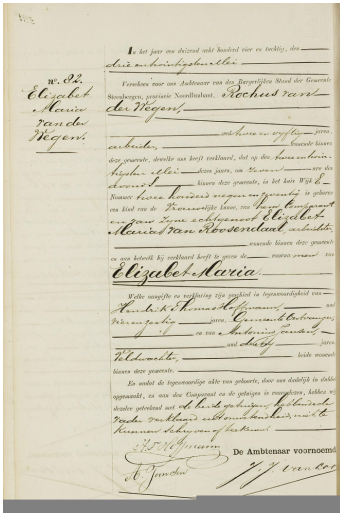 N°. 82.
Elizabet
Maria
van der
Wegen.
In het jaar een duizend acht honderd vier en tachtig, den
drie en twintigsten Mei
Verscheen voor ons Ambtenaar van den Burgerlijken Stand der Gemeente
Steenbergen, provincie Noordbrabant, Rochus van
der Wegen,
oud twee en vijftig jaren,
arbeider, wonende binnen
deze gemeente, dewelke ons heeft verklaard, dat op den twee en twin-
tigsten Mei dezes jaars, ten zeven ure des
avonds binnen deze gemeente, in het huis Wijk E
Nommer twee honderd negen en zeventig is geboren
een kind van de Vrouwelijke kunne, van hem Comparant
en van zijne echtgenoot Elizabet
Maria van Roosendaal, arbeidster,
wonende binnen deze gemeente
en aan hetwelk hij verklaard heeft te geven de voornamen van
Elizabet Maria.
Welke aangifte en verklaring zijn geschied in tegenwoordigheid van
Hendrik Thomas Hoffmann, oud
vier en zestig jaren, Gemeente Ontvanger,
en van Antonius
oud jaren
Veldwachter, beide wonende
binnen deze gemeente.
En omdat de tegenwoordige akte van geboorte, door ons dadelijk in dubbel
opgemaakt, en aan den Comparant en de getuigen is voorgelezen, hebben wij
dezelve geteekend met de beide getuigen, hebbende
vader verklaard uit onwetendheid niet te
kunnen schrijven of teekenen
H. T. Hoffmann
De Ambtenaar voornoemd
A.
J. J. van